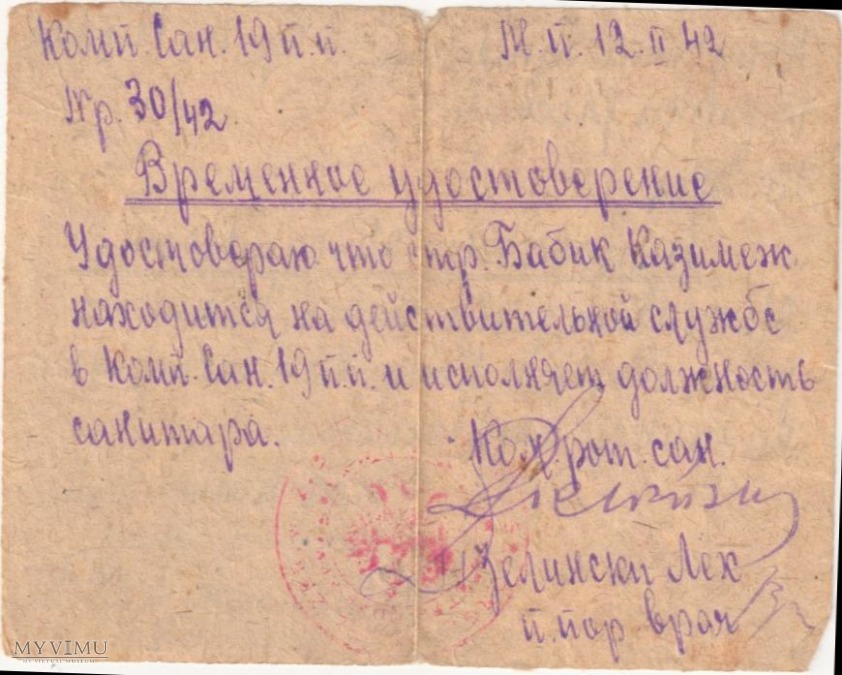 Комп. Сан. 19 п.п. М. п. 12. II 42
Nр. 30/42.
Временное удостоверение
Удостовераю что стр. Бабик Казимеж
находится на действительной службе
в Комп. Сан. 19 п.п. и исполняет должность
санитара.
Ком. рот. сан.
Зелински Лех
п. пор врач
MYVIMU
MY VIRTUAL MUSEUM